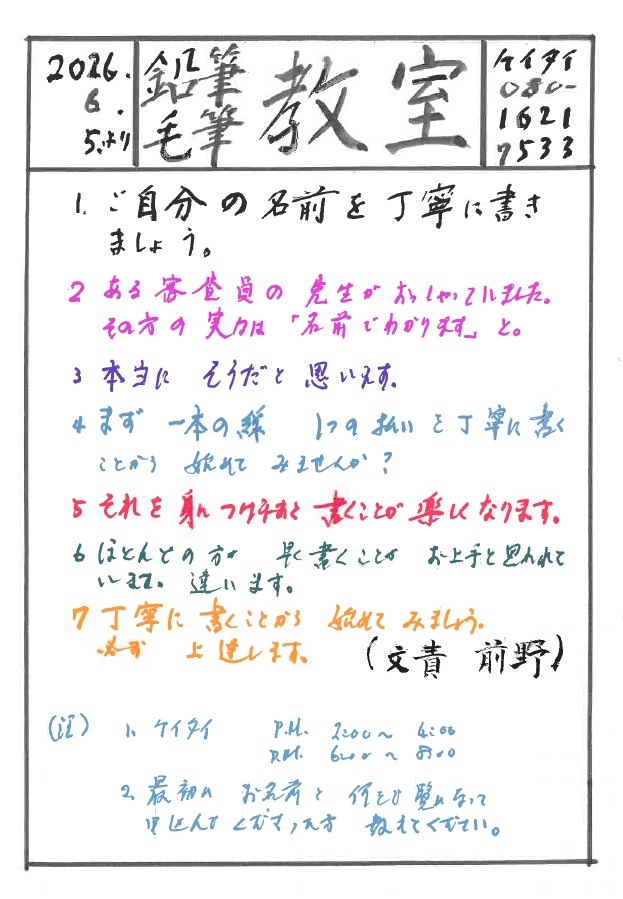 2026.
6.
5.より
鉛筆
毛筆
教室
ケイタイ
080-
1621
7533
1. ご自分の名前を丁寧に書き
ましょう。
2 ある審査員の先生がおっしゃっていました。
その方の実力は「名前でわかります」と。
3 本当に そうだと思います。
4 まず 一本の線 1つの払いを丁寧に書く
ことから 始めて みませんか?
5 それを身につけますと書くことが楽しくなります。
6 ほとんどの方が 早く書くことが お上手と思われて
います。違います。
7 丁寧に書くことから始めてみましょう。
必ず 上達します。
(文責 前野)
(注) 1. ケイタイ P.M. 2:00〜 4:00
P.M. 6:00〜 8:00
2. 最初に お名前と 何をご覧になって
申込んでくださった方 教えてください。